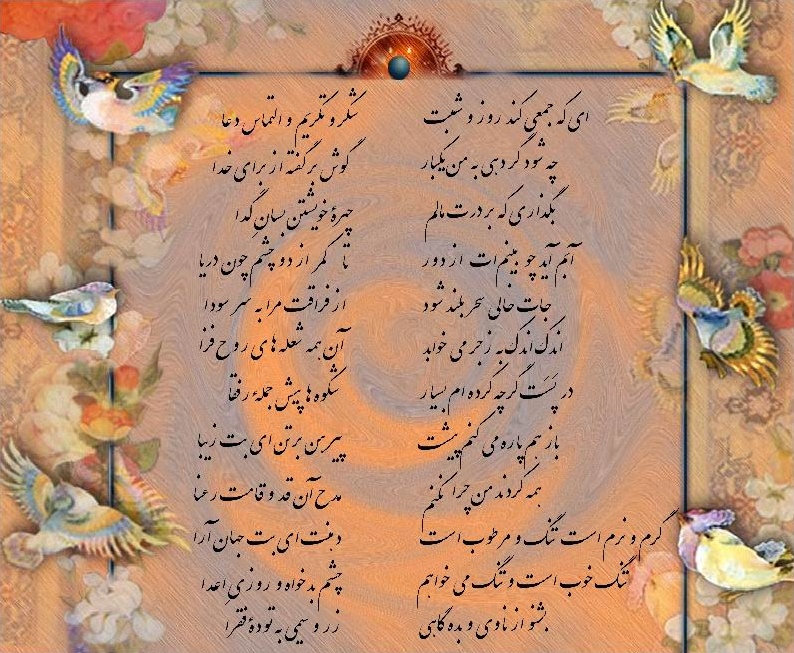 ای که جمعی کند روز و شبت شکر و تکریم و التماس دعا
چه شود گر دهی به من یکبار گوش برگفته از برای خدا
بگذاری که بر درت مالم چهرهٔ خویشتن بسان گدا
آبم آید چو بینم ات از دور تا کمر از دو چشم چون دریا
جات خالی سحر بلند شود از فراقت مرا به سر سودا
اندک اندک به زجر می خوابد آن همه شعله های روح فزا
در پَسَت گرچه کرده ام بسیار شکوه ها پیش جملهٔ رفقا
باز هم پاره می کنم پیشت پیرهن برتن ای بت زیبا
همه کردند من چرا نکنم مدح آن قد و قامت رعنا
گرم و نرم است تنگ و مرطوب است دهنت ای بت جهان آرا
تنگ خوب است و تنگ می خواهم چشم بدخواه و روزی اعدا
بشنو از ناوی و بده گاهی زر و سیمی به تودهٔ فقرا